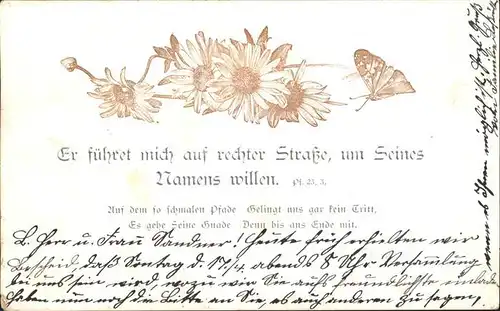 Er führet mich auf rechter Straße, um Seines
Namens willen. Ps. 23, 3.
Auf dem so schmalen Pfade Gelingt uns gar kein Tritt,
Es gehe Seine Gnade Denn bis ans Ende mit.
L. Herr u. Frau Sandner! Heute früh erhielten wir
Bescheid, daß Sontag d. 17/4. abends 8 Uhr Versammlung
bei uns sein wird, wozu wir Sie aufs freundlichste einlade
haben nun noch die Bitte an Sie, es auch anderen zu sagen,
wenn es Ihnen möglich ist. Herzl. Gruß